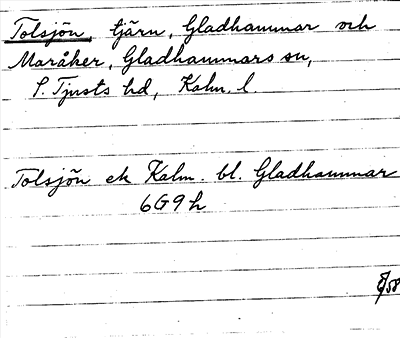 Tolsjön, tjärn, Gladhammar och
Maråker, Gladhammars sn,
S. Tjusts hd, Kalm. l.
Tolsjön ek Kalm. bl. Gladhammar
6G9h